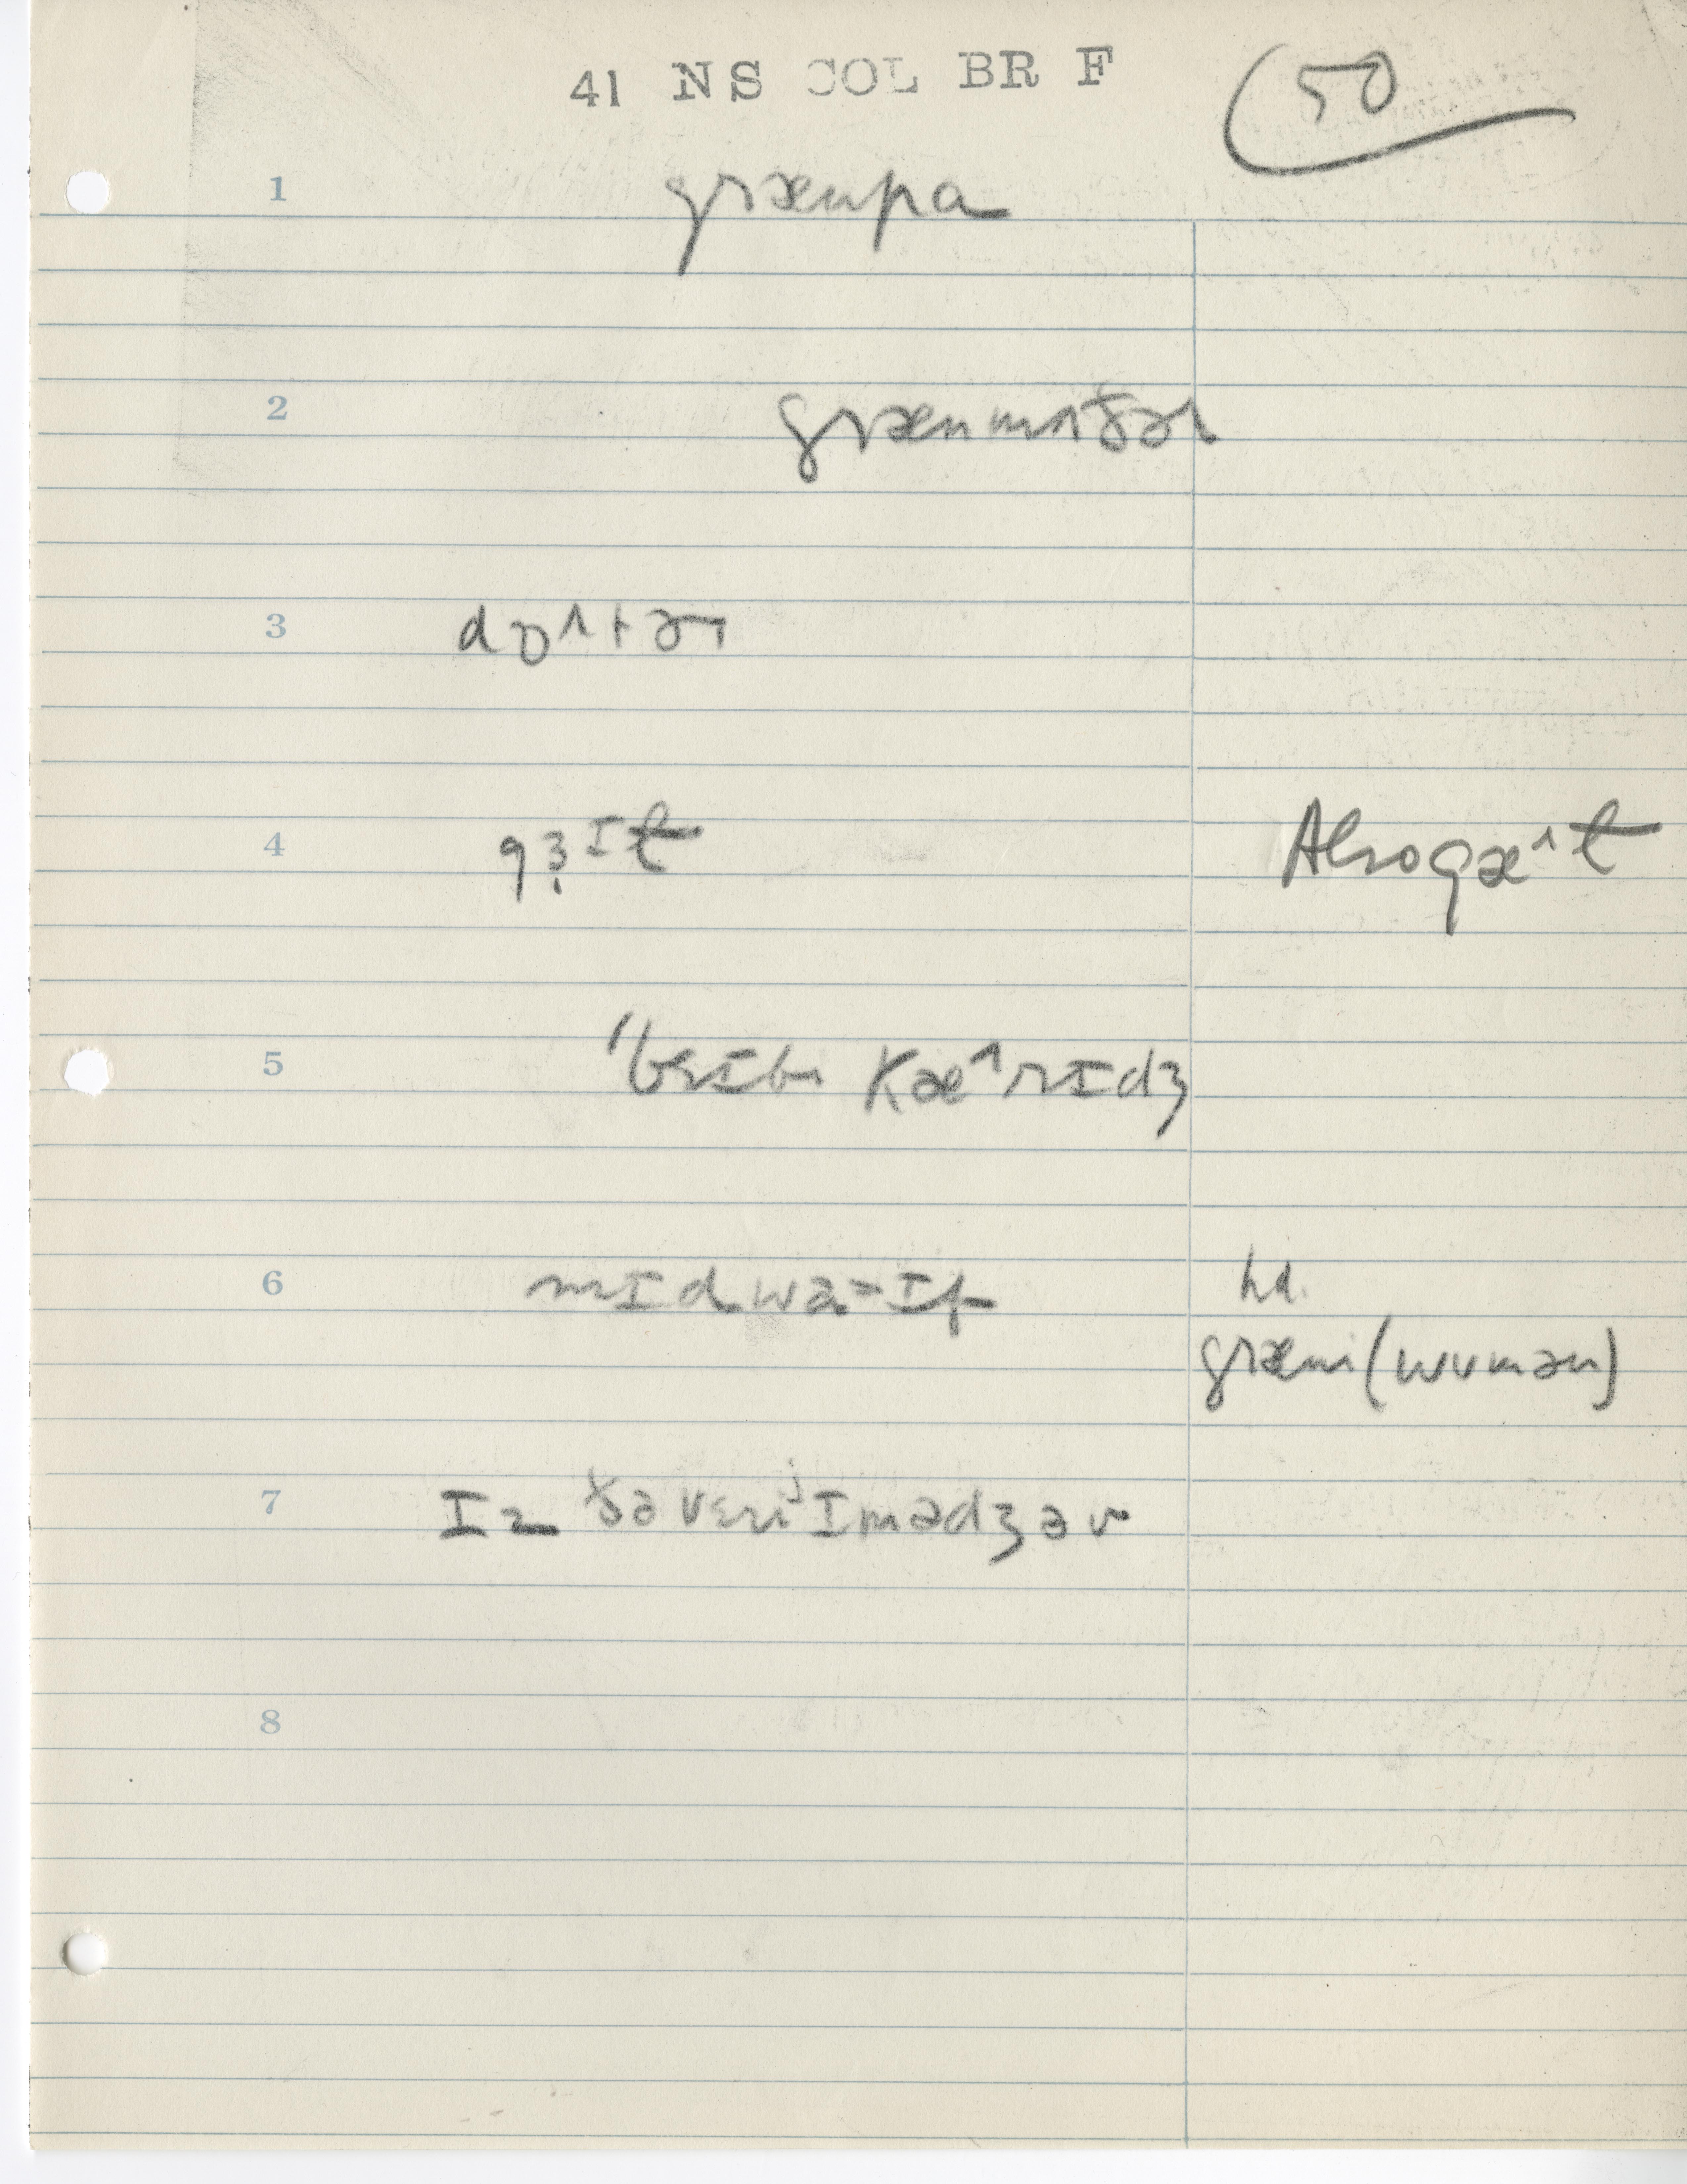 41 NS COL BR F
50
1 grænpa
2 grænmʌðɚ
3 dɒ^tɚ
4 gɜ̣ᴵt Also gæ^t
5 'beɪbɪ kæ^rɪdʒ
6 mɪdwa-ɪf hd.
græni (wʊmən)
7 ɪz ðə veriʲɪmədʒəv
8